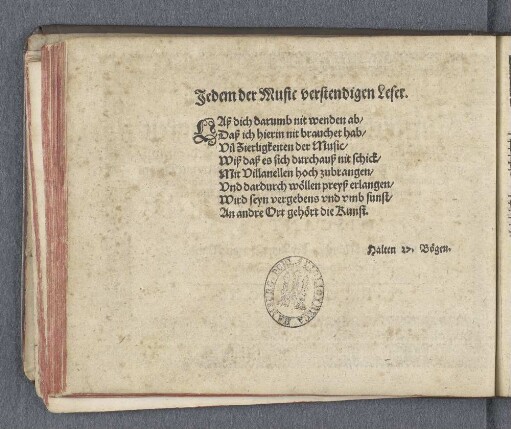 Jedem der Music verstendigen Leser.
LAß dich darumb nit wenden ab/
Daß ich hierin nit brauchet hab/
Vil Zierligkeiten der Music/
Wiß daß es sich durchauß nit schick/
Mit Villanellen hoch zubrangen/
Vnd dardurch wöllen preyß erlangen/
Wird seyn vergebens vnd vmb sunst/
An andre Ort gehört die Kunst.
Halten v. Bögen.